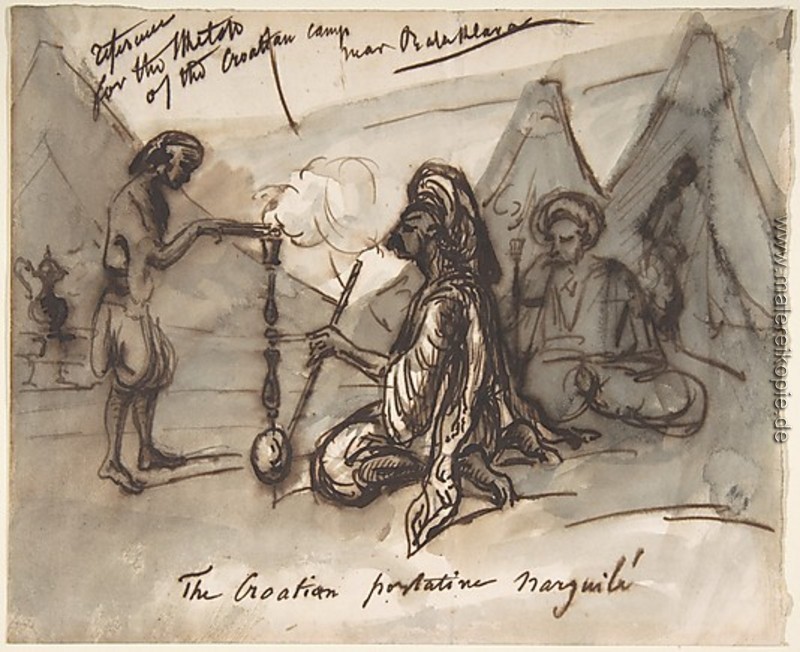 reference
for the Sketch
of the Croatian camp
near Balaklava
The Croatian portative narguilé
www.malereikopie.de